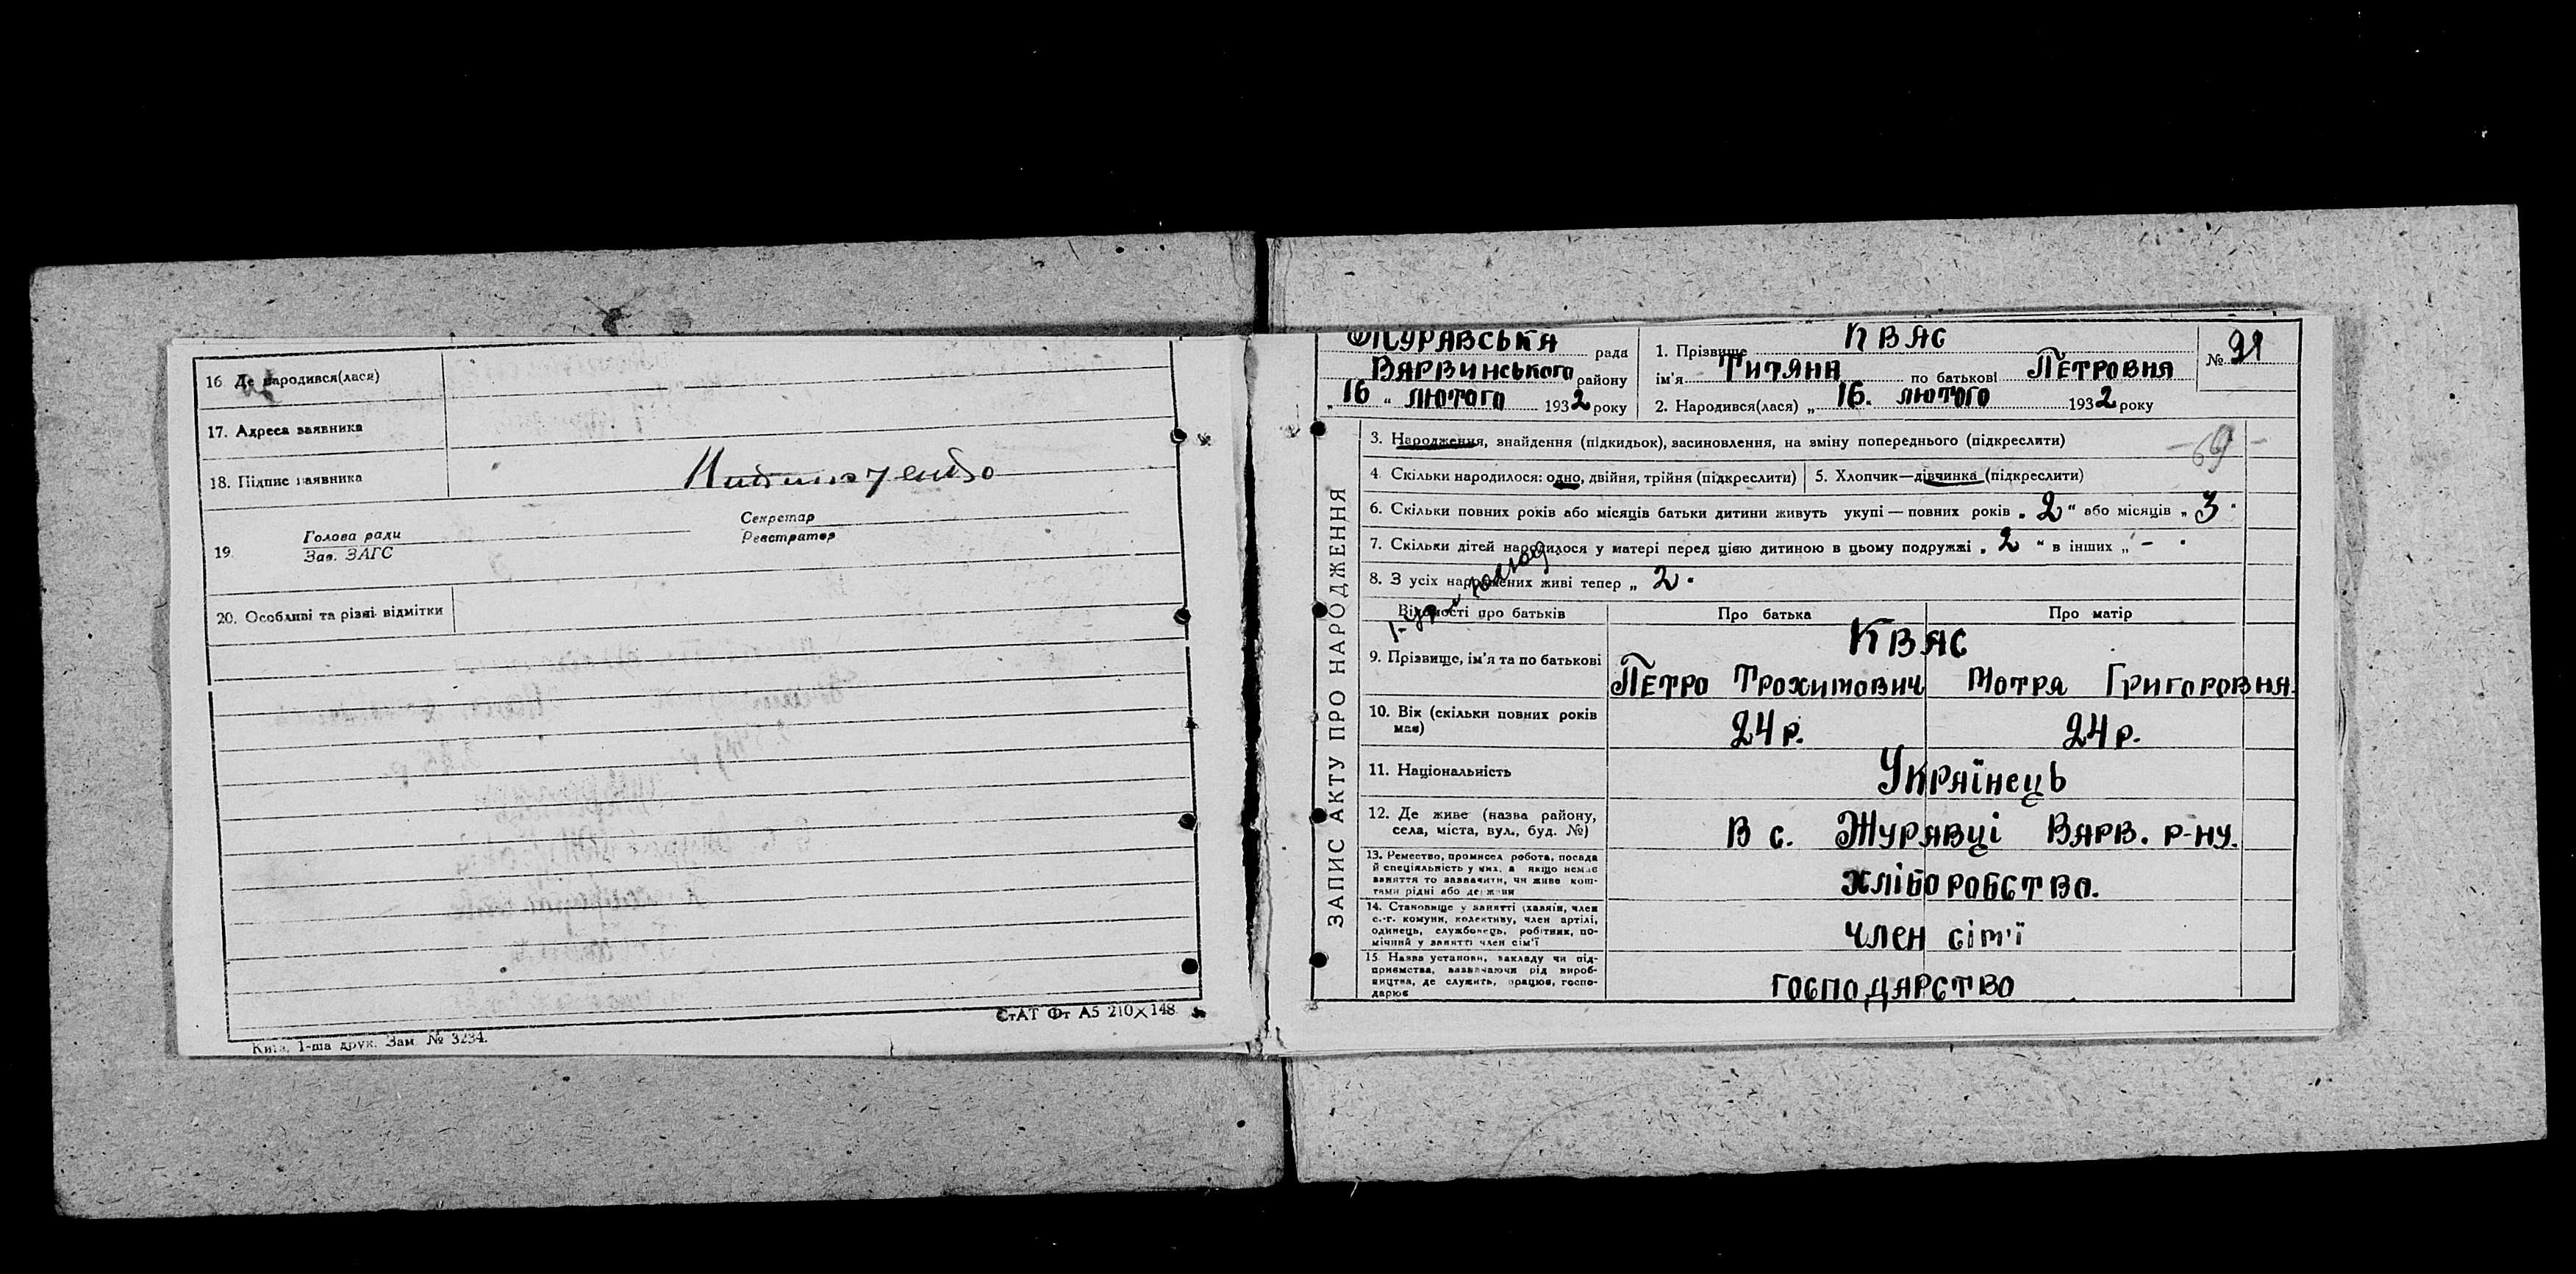 16 Де народився(лася)
17. Адреса заявника
18. Підпис заявника
19.
Голова ради
Зав. ЗАГС
Секретар
Реєстратор
20. Особливі та різні відмітки
СтАТ Фт А5 210×148
Київ, 1-ша друк. Зам. № 3234.
ЗАПИС АКТУ ПРО НАРОДЖЕННЯ
Журавська рада
Варвинського району
„16" лютого 1932 року
1. Прізвище Квас
ім'я Титяна по батькові Петровня
2. Народився(лася) „16. лютого 1932 року
№ 21
3. Народження, знайдення (підкидьок), засиновлення, на зміну попереднього (підкреслити)
- 69 -
4. Скільки народилося: одно, двійня, трійня (підкреслити)
5. Хлопчик—дівчинка (підкреслити)
6. Скільки повних років або місяців батьки дитини живуть укупі — повних років „2" або місяців „3"
7. Скільки дітей народилося у матері перед цією дитиною в цьому подружжі „2" в інших „-"
8. З усіх народжених живі тепер „2"
Відомості про батьків
Про батька
Про матір
9. Прізвище, ім'я та по батькові
Квас
Петро Трохимович
Мотря Григоровня
10. Вік (скільки повних років має)
24 р.
24 р.
11. Національність
Українець
12. Де живе (назва району,
села, міста, вул., буд. №)
В с. Журавці Варв. р-ну.
13. Ремество, промисел робота, посада
й спеціяльність у них, а якщо немає
заняття то зазначити, чи живе кош-
тами рідні або держави
хліборобство.
14. Становище у занятті (хазяїн, член
с.-г. комуни, колективу, член артілі,
одинець, службовець, робітник, по-
мічний у занятті член сім'ї
член сім'ї
15. Назва установи, закладу чи під-
приємства, зазначаючи рід вироб-
ництва, де служить, працює, госпо-
дарює
господарство